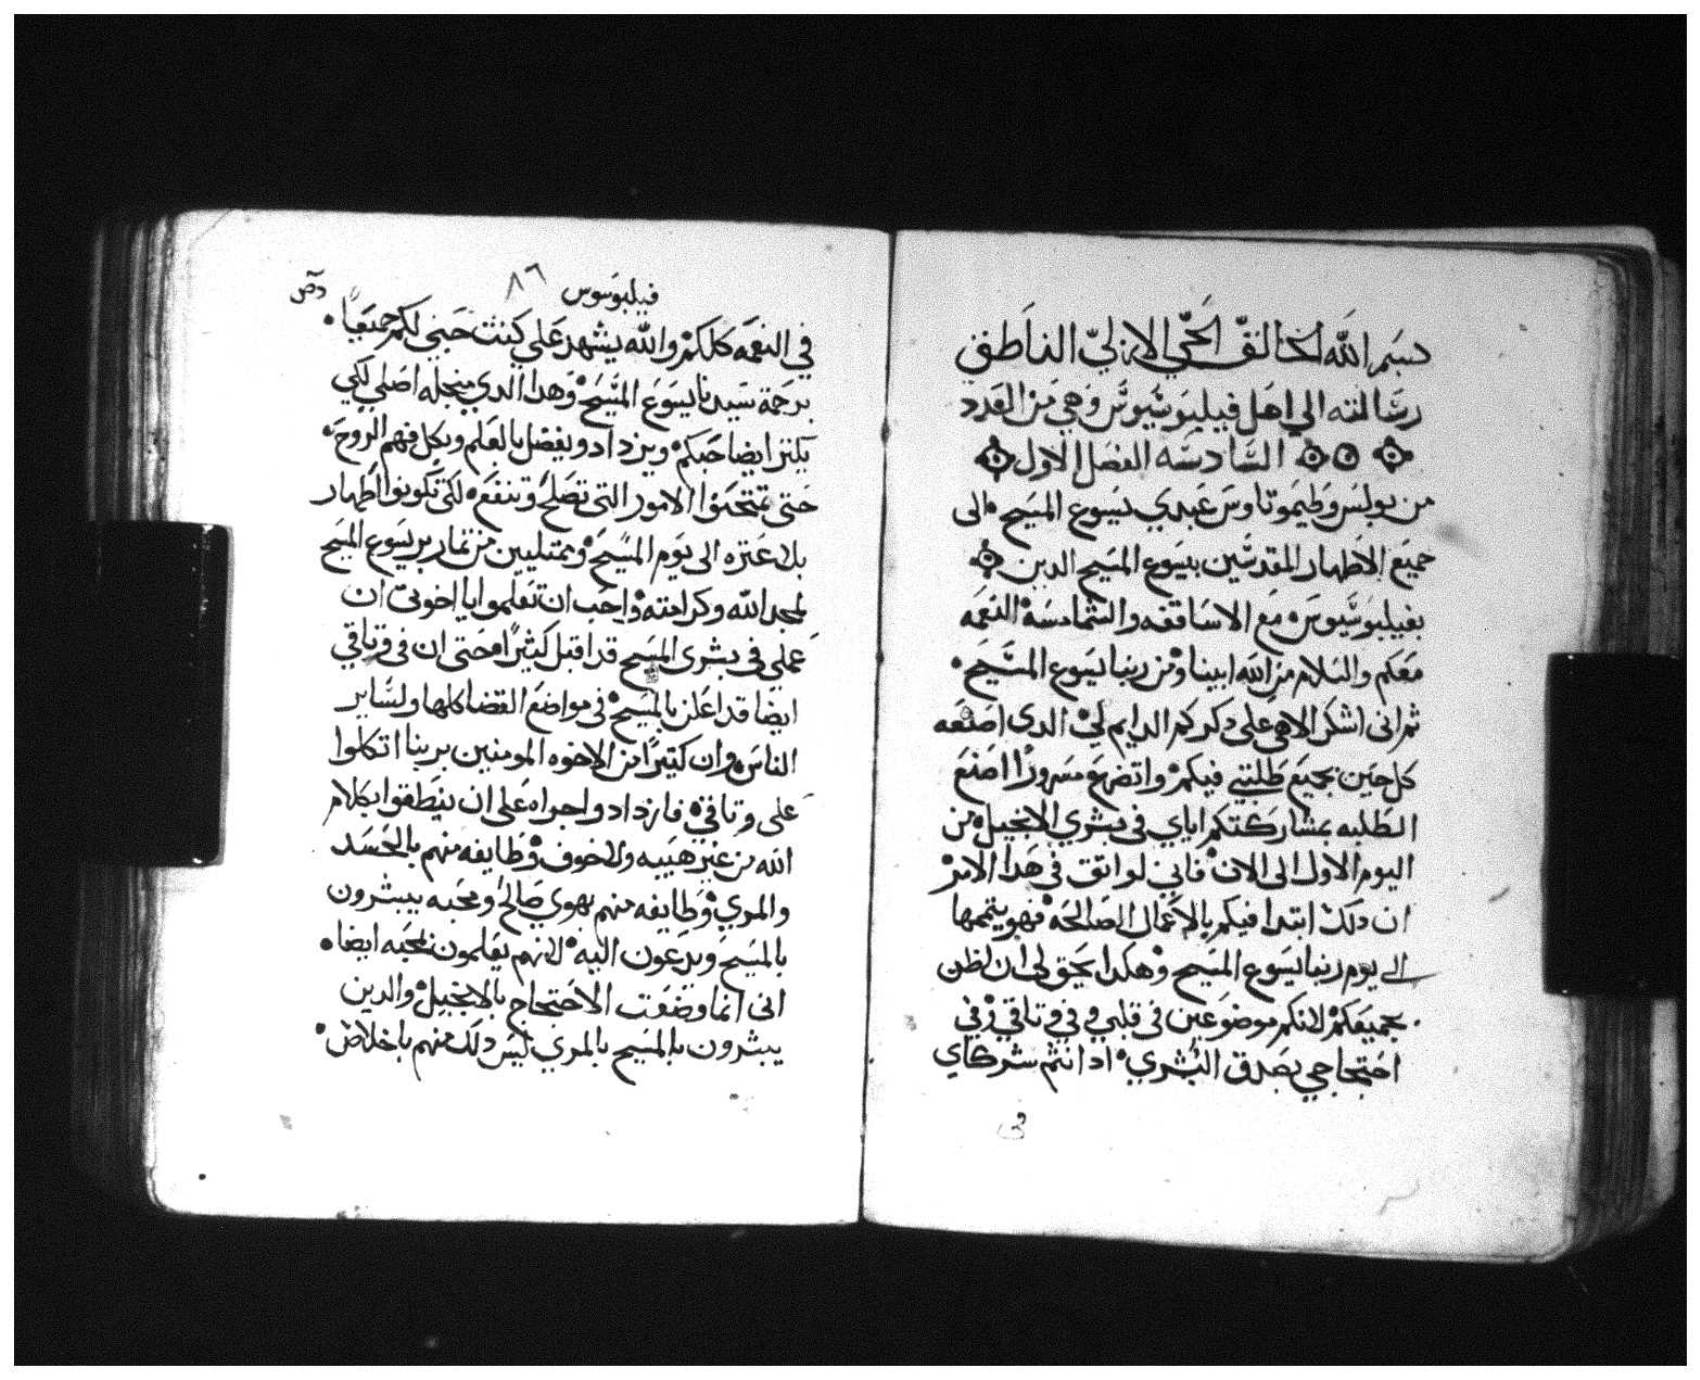 بسم الله الخالق الحي الازلي الناطق
رسالته الي اهل فيليبوسيوس وهي من العدد
السادسه الفصل الاول
من بولس وطيموتاوس عبدي يسوع المسيح الى
جميع الاطهار المقدسين بيسوع المسيح الدين
بفيليبوسيوس مع الاساقفه والشمامسة النعمه
معكم والسلام من الله ابينا ومن ربنا يسوع المسيح
ثم انى اشكر الاهي على دكركم الدايم لي الدى اصنعه
كل حين بجميع طلبتي فيكم واتضرع مسرورا اصنع
الطلبه بمشاركتكم اياي فى بشري الانجيل من
اليوم الاول الى الان فاني لواتق في هدا الامر
ان دلك ابتدا فيكم بالاعمال الصالحه فهو يتممها
الى يوم ربنا يسوع المسيح وهكدا يحق لى ان اظن
بجميعكم لانكم موضوعين فى قلبي وفي وتاقي وفي
احتجاجي بصدق البشري اد انتم شركاي
في
فيلبوسوس ٨٦
في النعمه كلكم والله يشهد علي كيف حبي لكم جميعا
برحمة سيدنا يسوع المسيح وهدا الدي منجله اصلي لكي
يكتر ايضا حبكم ويزداد ويفضل بالعلم وبكل فهم الروح
حتى تمتحنوا الامور التى تصلح وتنفع لكى تكونوا اطهار
بلا عتره الى يوم المسيح وممتليين من تمار بر يسوع المسيح
لمجد الله وكرامته واحب ان تعلموا يا اخوتى ان
عملى فى بشرى المسيح قد اقبل كثيرا حتى ان فى وتاقي
ايضا قد اعلن بالمسيح فى مواضع القضا كلها ولساير
الناس وان كتيرا من الاخوه المومنين بربنا اتكلوا
على وتاقي فازدادوا جراه على ان ينطقوا بكلام
الله من غير هيبه ولا خوف وطايفه منهم بالحسد
والمري وطايفه منهم بهوي صالح ومحبه يبشرون
بالمسيح ويدعون اليه لانهم يعلمون بمحبه ايضا
انى انما وضعت الاحتجاج بالانجيل والدين
يبشرون بالمسيح بالمري ليس دلك منهم باخلاص